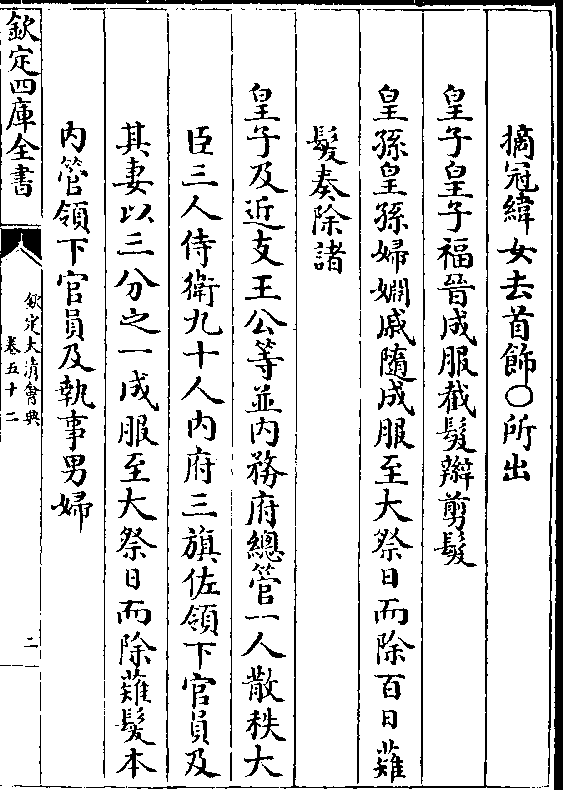 摘冠緯女去首飾○所出
皇子皇子福晉成服截髮辮剪髮
皇孫皇孫婦婣戚隨成服至大祭日而除百日薙
髮奏除諸
皇子及近支王公等並内務府總管一人散秩大
臣三人侍衛九十人内府三旗佐領下官員及
其妻以三分之一成服至大祭日而除薙髮本
内管領下官員及執事男婦
欽定四庫全書
欽定大清會典
卷五十二
二